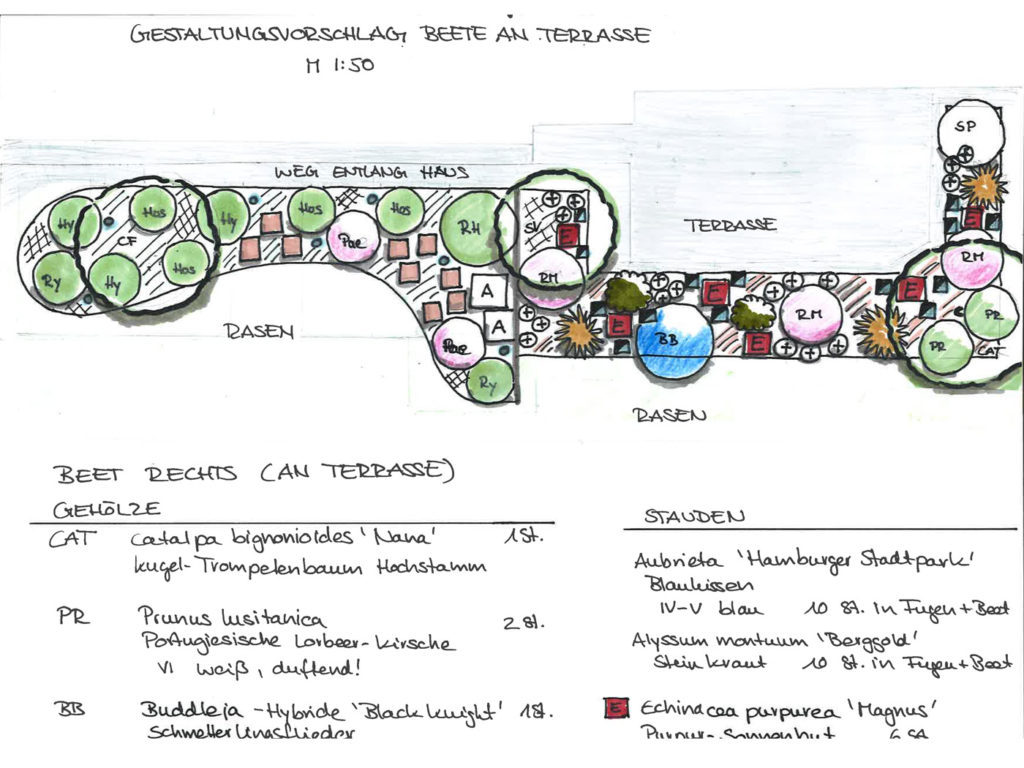 GESTALTUNGSVORSCHLAG BEETE AN TERRASSE
M 1:50
SP
WEG ENTLANG HAUS
TERRASSE
Hy
Hos
Hy
Hos
Hos
CF
Pae
RH
SV
E
E
RM
RM
Ry
Hy
Hos
A
E
E
RM
PR
A
E
BB
E
PR
CAT
Pae
Ry
RASEN
RASEN
BEET RECHTS (AN TERRASSE)
GEHÖLZE
CAT Catalpa bignonioides 'Nana' 1 St.
Kugel-Trompetenbaum Hochstamm
PR Prunus lusitanica 2 St.
Portugiesische Lorbeer-Kirsche
VI weiß, duftend!
BB Buddleja - Hybride 'Black Knight' 1 St.
Schmetterlingsflieder
STAUDEN
Aubrieta 'Hamburger Stadtpark'
Blaukissen
IV-V blau 10 St. in Fugen + Beet
Alyssum montuum 'Berggold'
Steinkraut 10 St. in Fugen + Beet
E Echinacea purpurea 'Magnus'
Purpur-Sonnenhut